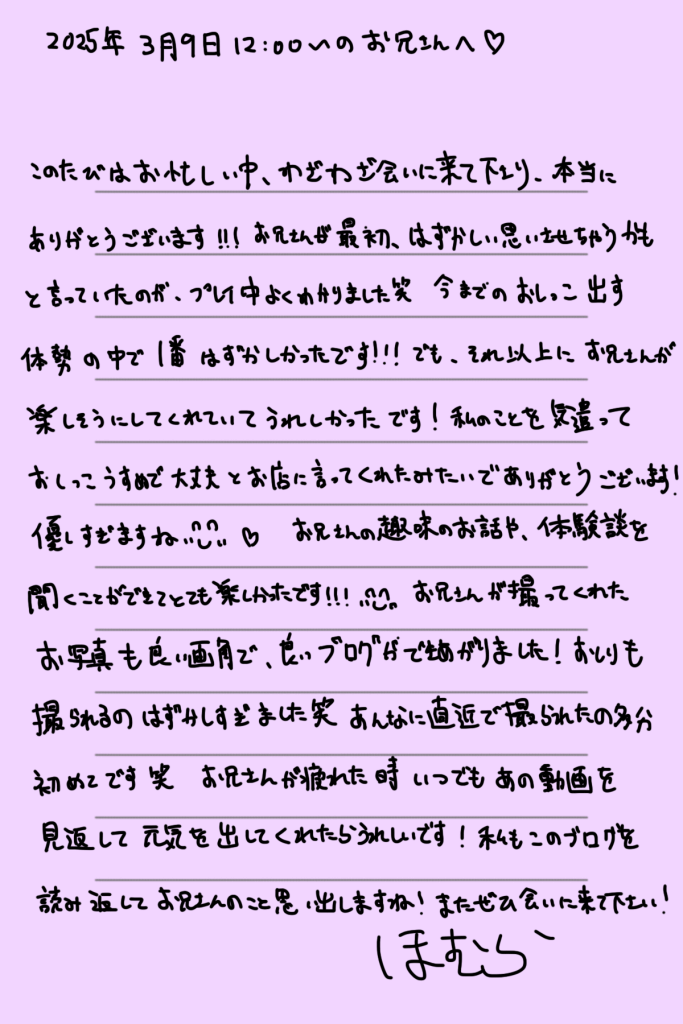 2025年 3月9日 12:00〜の お兄さんへ♡
このたびはお忙しい中、わざわざ会いに来て下さり、本当に
ありがとうございます!!! お兄さんが最初、はずかしい思いさせちゃうかも
と言っていたのが、プレイ中よくわかりました笑 今までのおしっこ出す
体勢の中で1番はずかしかったです!!! でも、それ以上にお兄さんが
楽しそうにしてくれていてうれしかったです! 私のことを気遣って
おしっこうすめで大丈夫とお店に言ってくれたみたいでありがとうございます!
優しすぎますね ♡ お兄さんの趣味のお話や、体験談を
聞くことができてとても楽しかったです!!! お兄さんが撮ってくれた
お写真も良い画角で、良いブログができあがりました! おしりも
撮られるのはずかしすぎました笑 あんなに直近で撮られたの多分
初めてです笑 お兄さんが疲れた時いつでもあの動画を
見返して元気を出してくれたらうれしいです! 私もこのブログを
読み返してお兄さんのこと思い出しますね! またぜひ会いに来て下さい!
ほむら